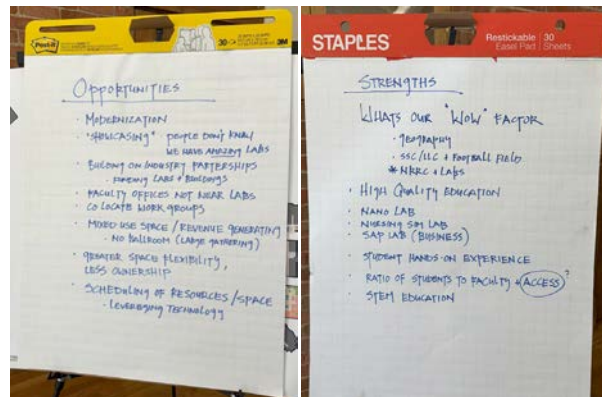 Post-it
30
3M
OPPORTUNITIES
· MODERNIZATION
· "SHOWCASING" PEOPLE DON'T KNOW
WE HAVE AMAZING LABS
· BUILDING ON INDUSTRY PARTERSHIPS
- FUNDING LABS + BUILDINGS
· FACULTY OFFICES NOT NEAR LABS
· CO LOCATE WORK GROUPS
· MIXED USE SPACE / REVENUE GENERATING
- NO BALLROOM (LARGE GATHERING)
· GREATER SPACE FLEXIBILITY,
LESS OWNERSHIP
· SCHEDULING OF RESOURCES / SPACE
- LEVERAGING TECHNOLOGY
STAPLES
Restickable 30
Easel Pad Sheets
STRENGTHS
WHATS OUR "WOW" FACTOR
· GEOGRAPHY
· SSC/LLC + FOOTBALL FIELD
* NRRC + LABS
· HIGH QUALITY EDUCATION
· NANO LAB
· NURSING SIM LAB
· SAP LAB (BUSINESS)
· STUDENT HANDS-ON EXPERIENCE
· RATIO OF STUDENTS TO FACULTY + ACCESS ?
· STEM EDUCATION